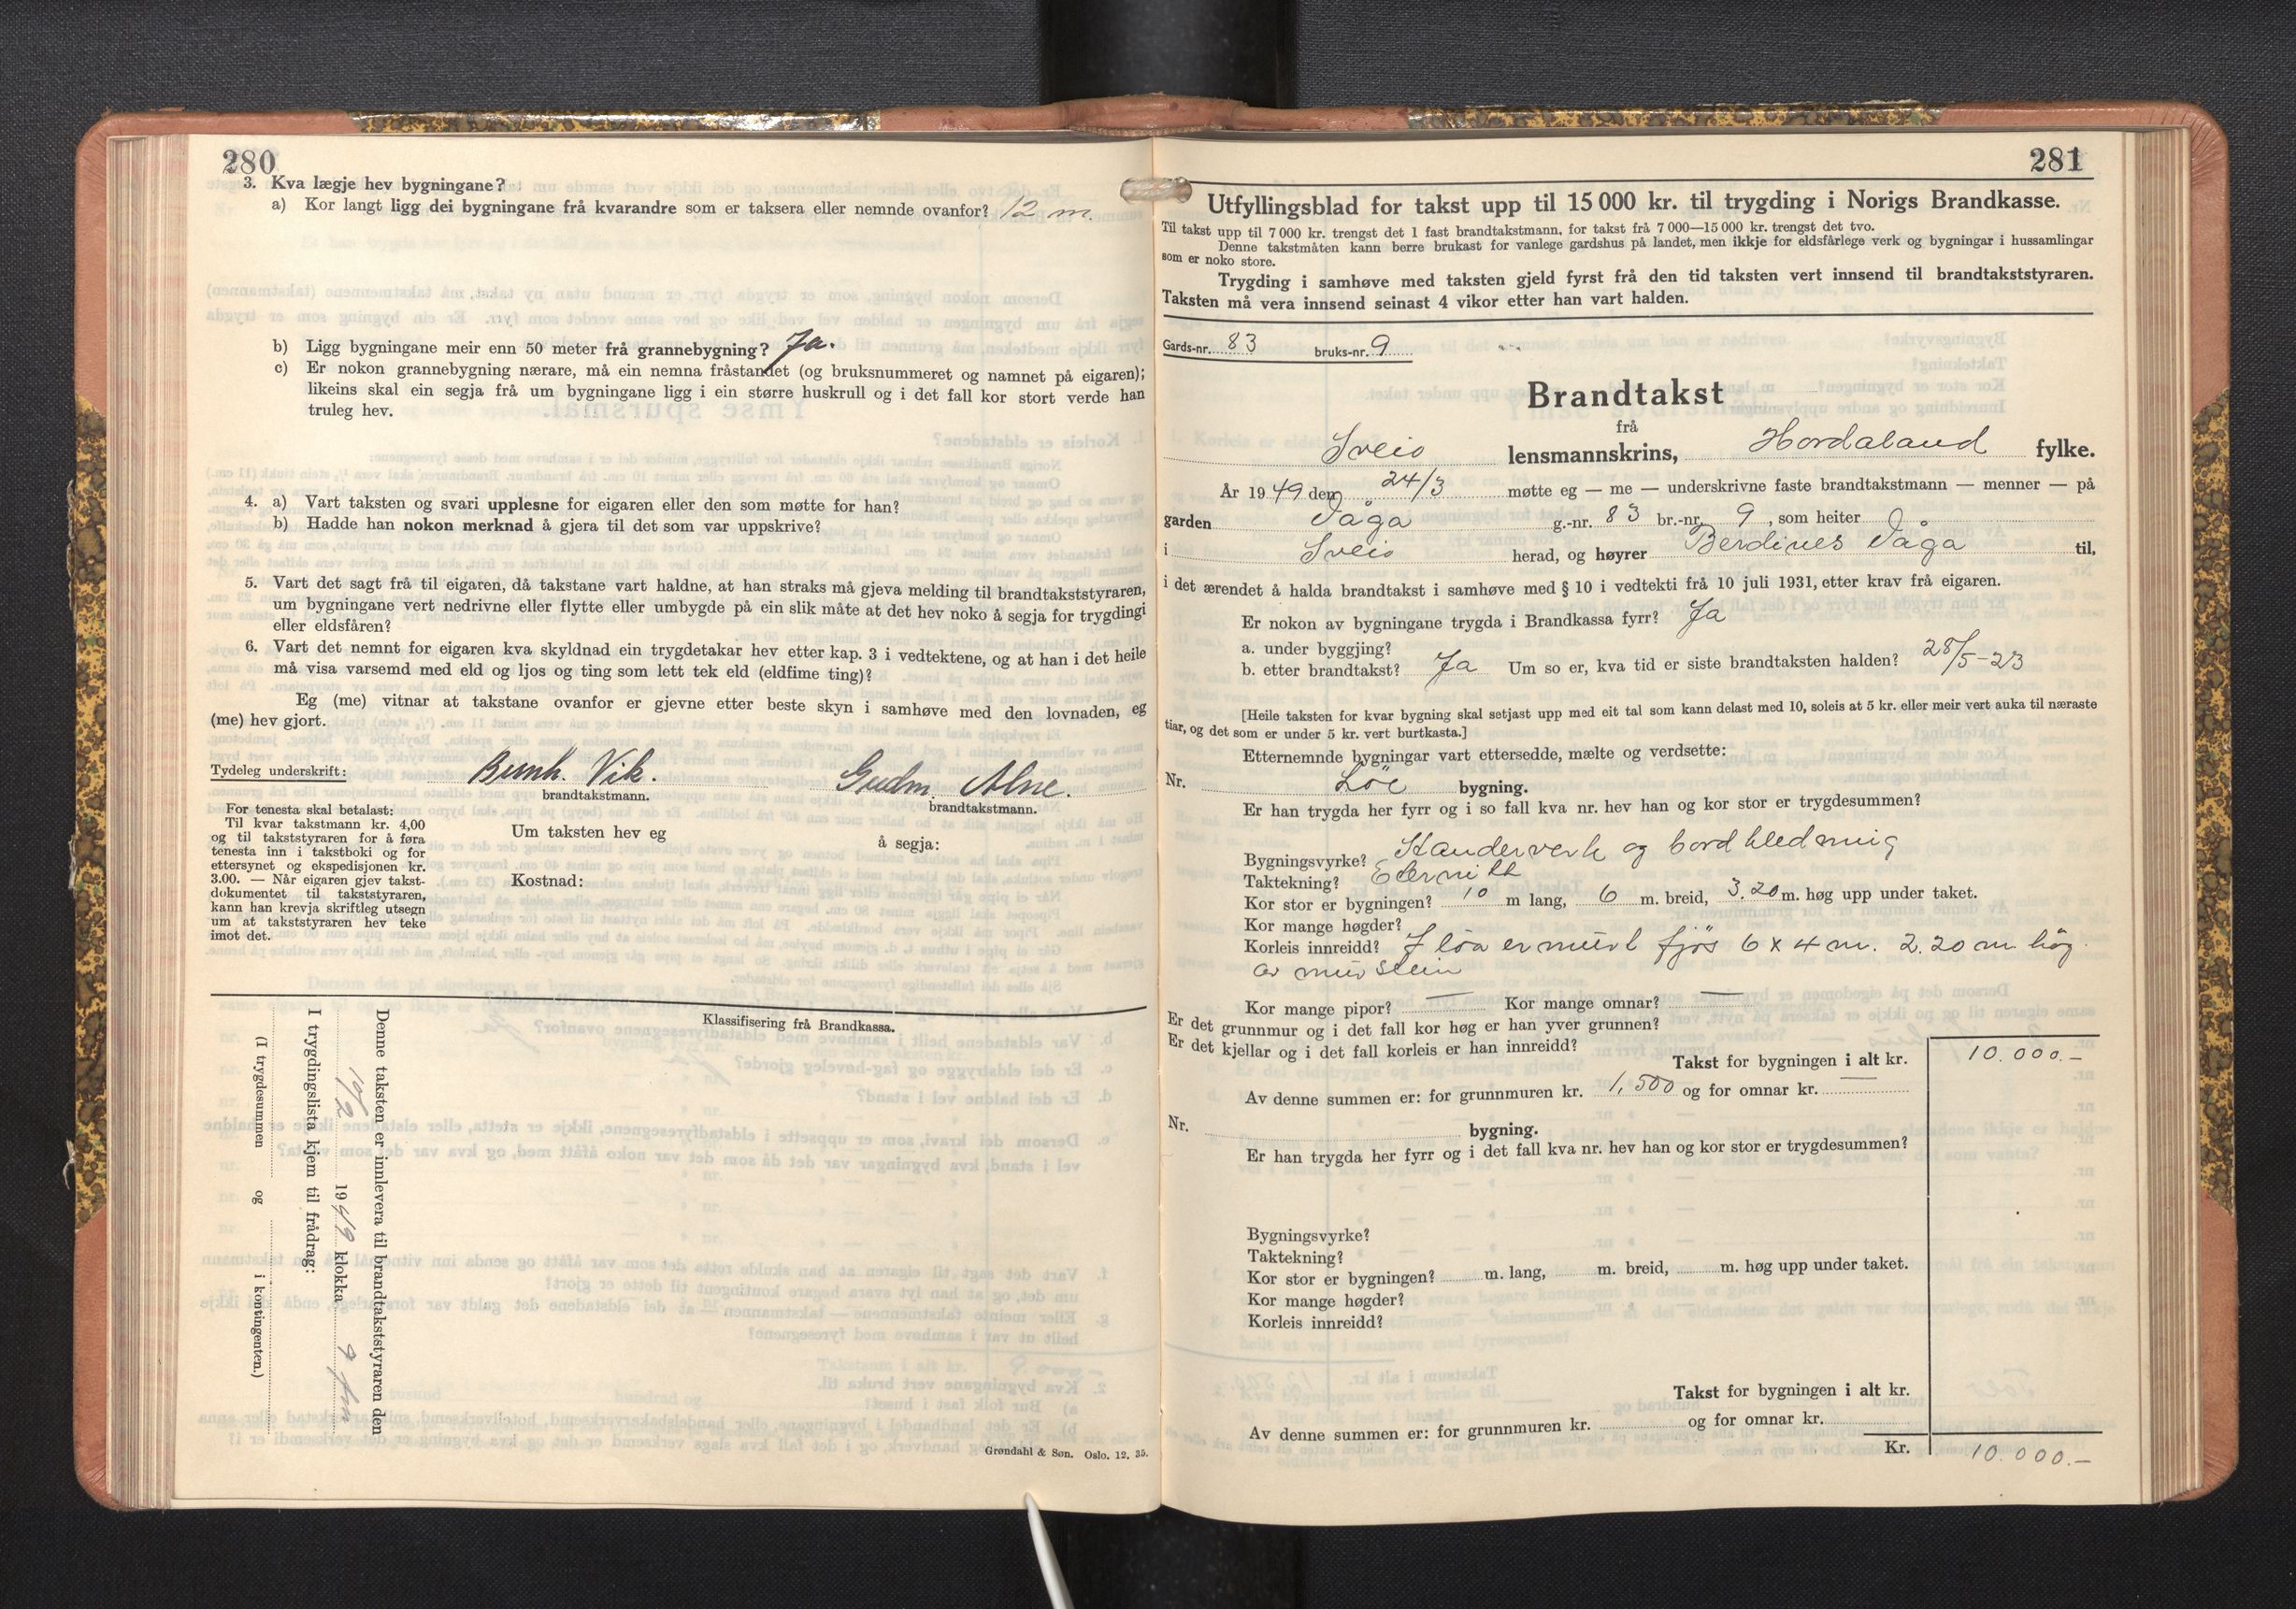 280
3. Kva lægje hev bygningane?
a) Kor langt ligg dei bygningane frå kvarandre som er taksera eller nemnde ovanfor? 12 m.
b) Ligg bygningane meir enn 50 meter frå grannebygning? Ja.
c) Er nokon grannebygning nærare, må ein nemna fråstandet (og bruksnummeret og namnet på eigaren);
likeins skal ein segja frå um bygningane ligg i ein større huskrull og i det fall kor stort verde han
truleg hev.
4. a) Vart taksten og svari upplesne for eigaren eller den som møtte for han?
b) Hadde han nokon merknad å gjera til det som var uppskrive?
5. Vart det sagt frå til eigaren, då takstane vart haldne, at han straks må gjeva melding til brandtakststyraren,
um bygningane vert nedrivne eller flytte eller umbygde på ein slik måte at det hev noko å segja for trygdingi
eller eldsfåren?
6. Vart det nemnt for eigaren kva skyldnad ein trygdetakar hev etter kap. 3 i vedtektene, og at han i det heile
må visa varsemd med eld og ljos og ting som lett tek eld (eldfime ting)?
Eg (me) vitnar at takstane ovanfor er gjevne etter beste skyn i samhøve med den lovnaden, eg
(me) hev gjort.
Tydeleg underskrift: Bernh. Vik. Gudm. Alne.
brandtakstmann. brandtakstmann.
For tenesta skal betalast:
Til kvar takstmann kr. 4,00
og til takststyraren for å føra
tenesta inn i takstboki og for
ettersynet og ekspedisjonen kr.
3.00. — Når eigaren gjev takst-
dokumentet til takststyraren,
kann han krevja skriftleg utsegn
um at takststyraren hev teke
imot det.
Um taksten hev eg å segja:
Kostnad:
Klassifisering frå Brandkassa.
Denne taksten er innlevera til brandtakststyraren den
10/2 1949 klokka 9 fm
I trygdingslista kjem til frådrag:
(I trygdesummen og i kontingenten.)
Grøndahl & Søn. Oslo. 12. 35.
281
Utfyllingsblad for takst upp til 15 000 kr. til trygding i Norigs Brandkasse.
Til takst upp til 7 000 kr. trengst det 1 fast brandtakstmann, for takst frå 7 000—15 000 kr. trengst det tvo.
Denne takstmåten kann berre brukast for vanlege gardshus på landet, men ikkje for eldsfårlege verk og bygningar i hussamlingar
som er noko store.
Trygding i samhøve med taksten gjeld fyrst frå den tid taksten vert innsend til brandtakststyraren.
Taksten må vera innsend seinast 4 vikor etter han vart halden.
Gards-nr. 83 bruks-nr. 9
Brandtakst
frå
Sveio lensmannskrins, Hordaland fylke.
År 1949 den 24/3 møtte eg — me — underskrivne faste brandtakstmann — menner — på
garden Våga g.-nr. 83 br.-nr. 9, som heiter Våga
i Sveio herad, og høyrer Berdines Våga til,
i det ærendet å halda brandtakst i samhøve med § 10 i vedtekti frå 10 juli 1931, etter krav frå eigaren.
Er nokon av bygningane trygda i Brandkassa fyrr? Ja
a. under byggjing?
b. etter brandtakst? Ja Um so er, kva tid er siste brandtaksten halden? 28/5-23
[Heile taksten for kvar bygning skal setjast upp med eit tal som kann delast med 10, soleis at 5 kr. eller meir vert auka til næraste
tiar, og det som er under 5 kr. vert burtkasta.]
Etternemnde bygningar vart ettersedde, mælte og verdsette:
Nr. Löe bygning.
Er han trygda her fyrr og i so fall kva nr. hev han og kor stor er trygdesummen?
Bygningsvyrke? Standerverk og bordkledning
Taktekning? Eternitt
Kor stor er bygningen? 10 m lang, 6 m. breid, 3.20 m. høg upp under taket.
Kor mange høgder?
Korleis innreidd? I löa er murt fjös 6 x 4 m. 2.20 m. hög
av murstein
Kor mange pipor? — Kor mange omnar? —
Er det grunnmur og i det fall kor høg er han yver grunnen?
Er det kjellar og i det fall korleis er han innreidd?
Takst for bygningen i alt kr. 10.000.-
Av denne summen er: for grunnmuren kr. 1,500 og for omnar kr. —
Nr. bygning.
Er han trygda her fyrr og i det fall kva nr. hev han og kor stor er trygdesummen?
Bygningsvyrke?
Taktekning?
Kor stor er bygningen? m. lang, m. breid, m. høg upp under taket.
Kor mange høgder?
Korleis innreidd?
Takst for bygningen i alt kr.
Av denne summen er: for grunnmuren kr. og for omnar kr.
Kr. 10.000.-